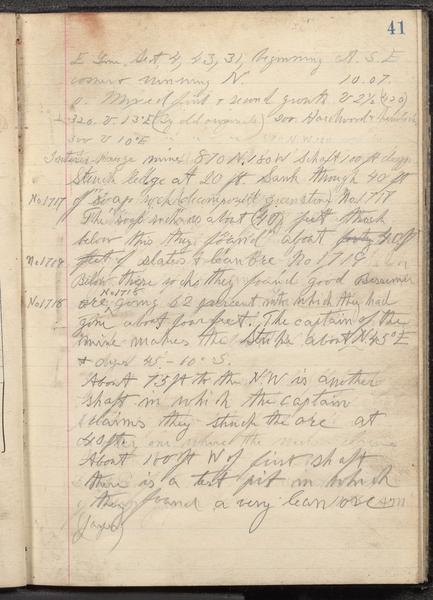 41
E line, Sect 4, 43, 31, Beginning at S.E
corner & running N. 10.07.
0. Mixed first & second growth V 2½ (120)
320. V. 13°E 200. Hardwood &
300 V 10°E
mine 870 N. 180 W Shaft 100 ft deep
Struck ledge at 20 ft. Sank through 40 ft
No 1717 of "soap rock (decomposed greenstone) No 1717
The "soap rock was about (40) feet thick
below this they found about forty 40 ft
No 1719 feet of slates & lean ore No 1719
Below these rocks they found good Bessemer
No 1718 ore, No 1718 going 62 percent into which they had
gone about four feet. The captain of the
mine makes the strike about N. 45° E
& dips 45° - 60° S.
About 75 ft to the N.W is another
shaft in which the captain
claims they struck the ore at
40 ft
About 180 ft W of first shaft
there is a test pit in which
they found a very lean ore